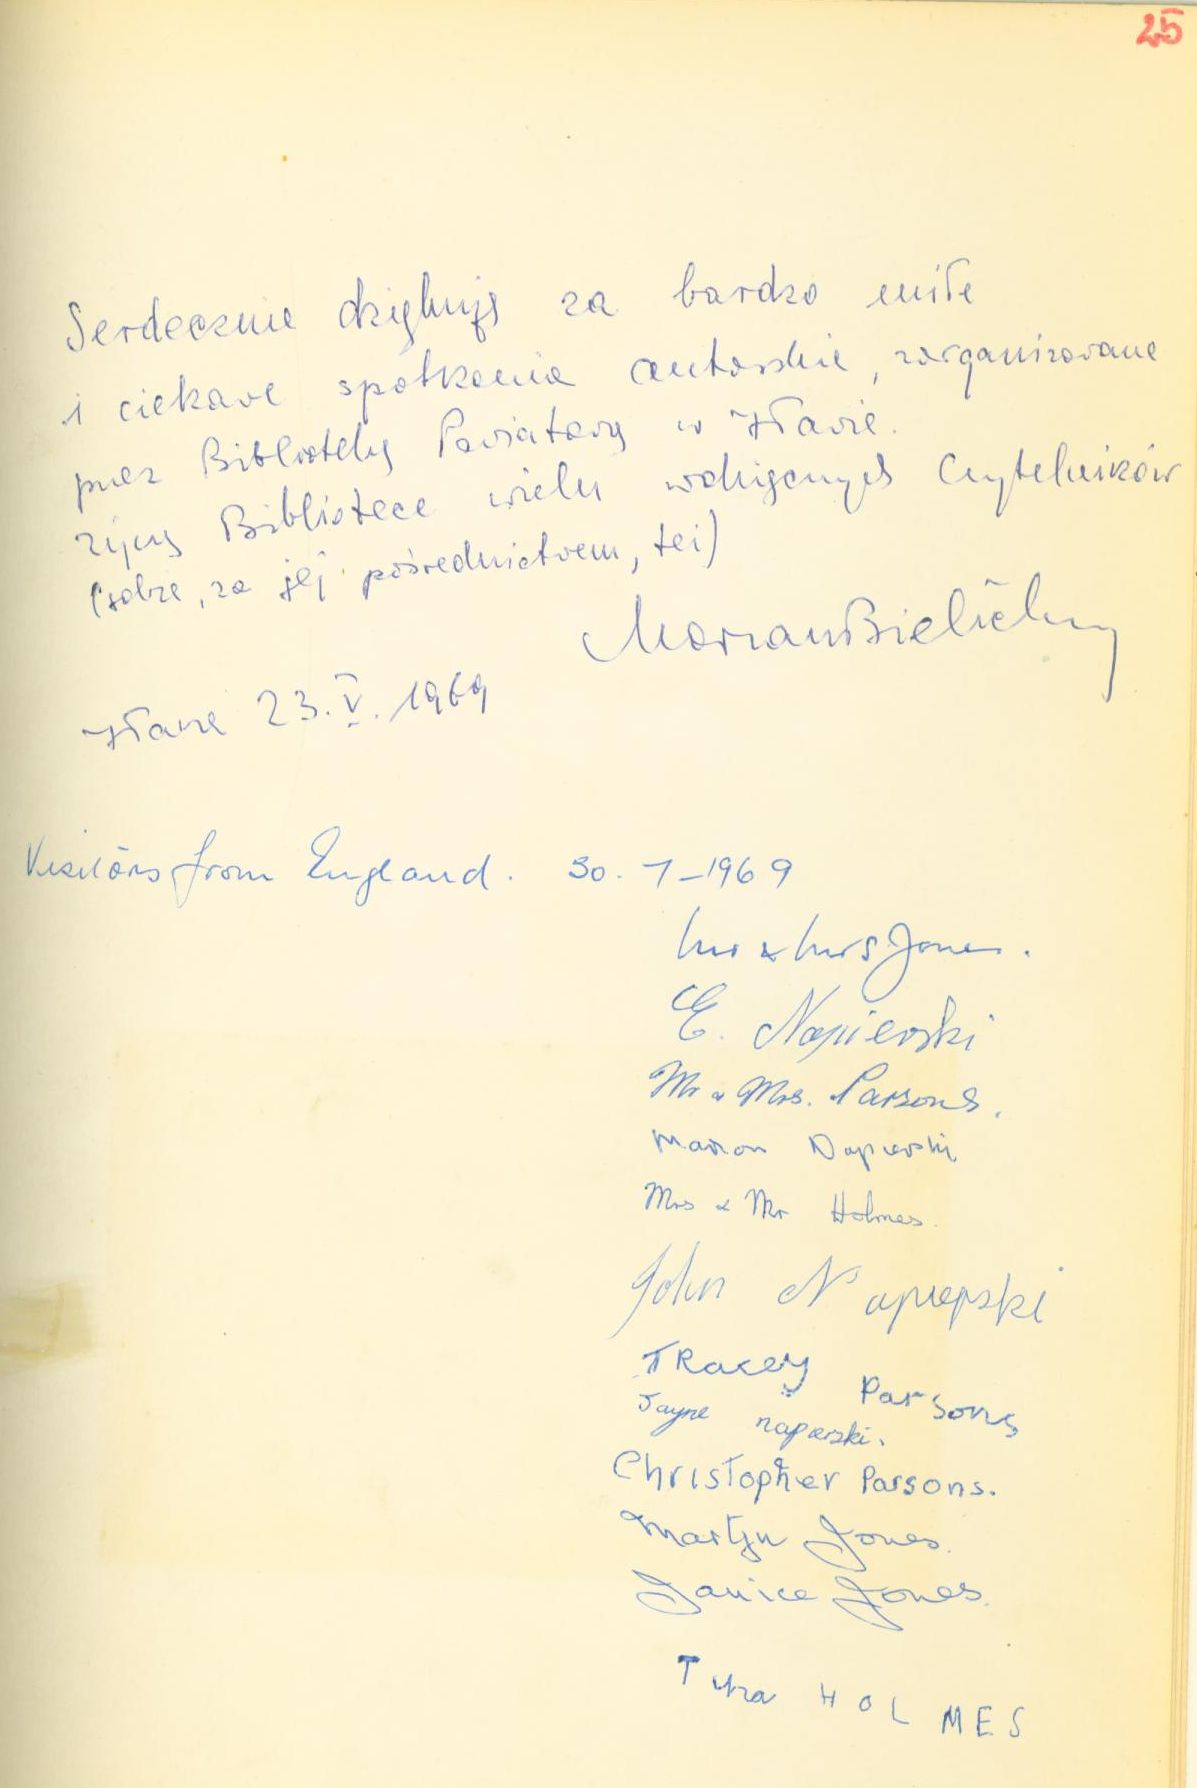 25
Serdecznie dziękuję za bardzo miłe
i ciekawe spotkanie autorskie, zorganizowane
przez Bibliotekę Powiatową w Iławie.
Życzę Bibliotece wielu wdzięcznych Czytelników
(sobie, za jej pośrednictwem, też)
Marian Bielicki
Iława 23.V.1969
Visitors from England. 30. 7-1969
Mr & Mrs Jones.
E. Napierski
Mr & Mrs. Parsons.
Marion Napierski
Mrs & Mr Holmes.
John Napierski
TRacey Parsons
Jayne napierski.
Christopher Parsons.
Martyn Jones.
Janice Jones.
HOLMES